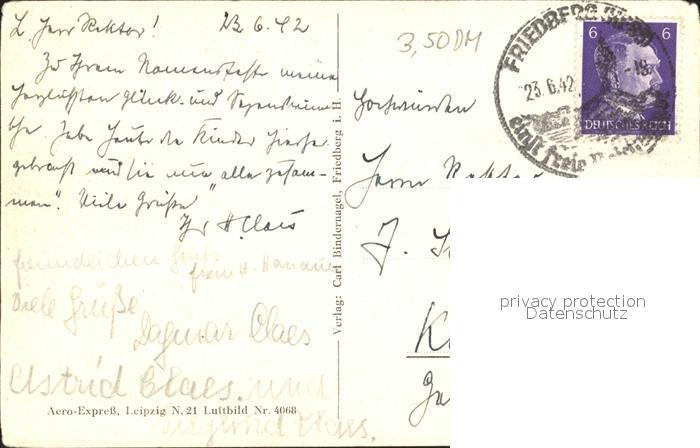 L. Herr Rektor! 23.6.42
Zu Ihrem Namensfeste meine
herzlichsten Glück- und Segenswün-
sche. Habe heute die Kinder hierher
gebracht und sie nun alle zusam-
men". Viele Grüße"
Ihr H. Claes
freundlichen Gruß
Viele Grüße
Dagmar Claes
Astrid Claes. und
Siegfried Claes.
Aero-Expreß, Leipzig N. 21 Luftbild Nr. 4068
Verlag: Carl Bindernagel, Friedberg i. H.
3,50 DM
FRIEDBERG (HESS)
23.6.42. -18
freie Reichs
6 6
DEUTSCHES REICH
Hochwürden
Herrn Rektor
J.
K
privacy protection
Datenschutz